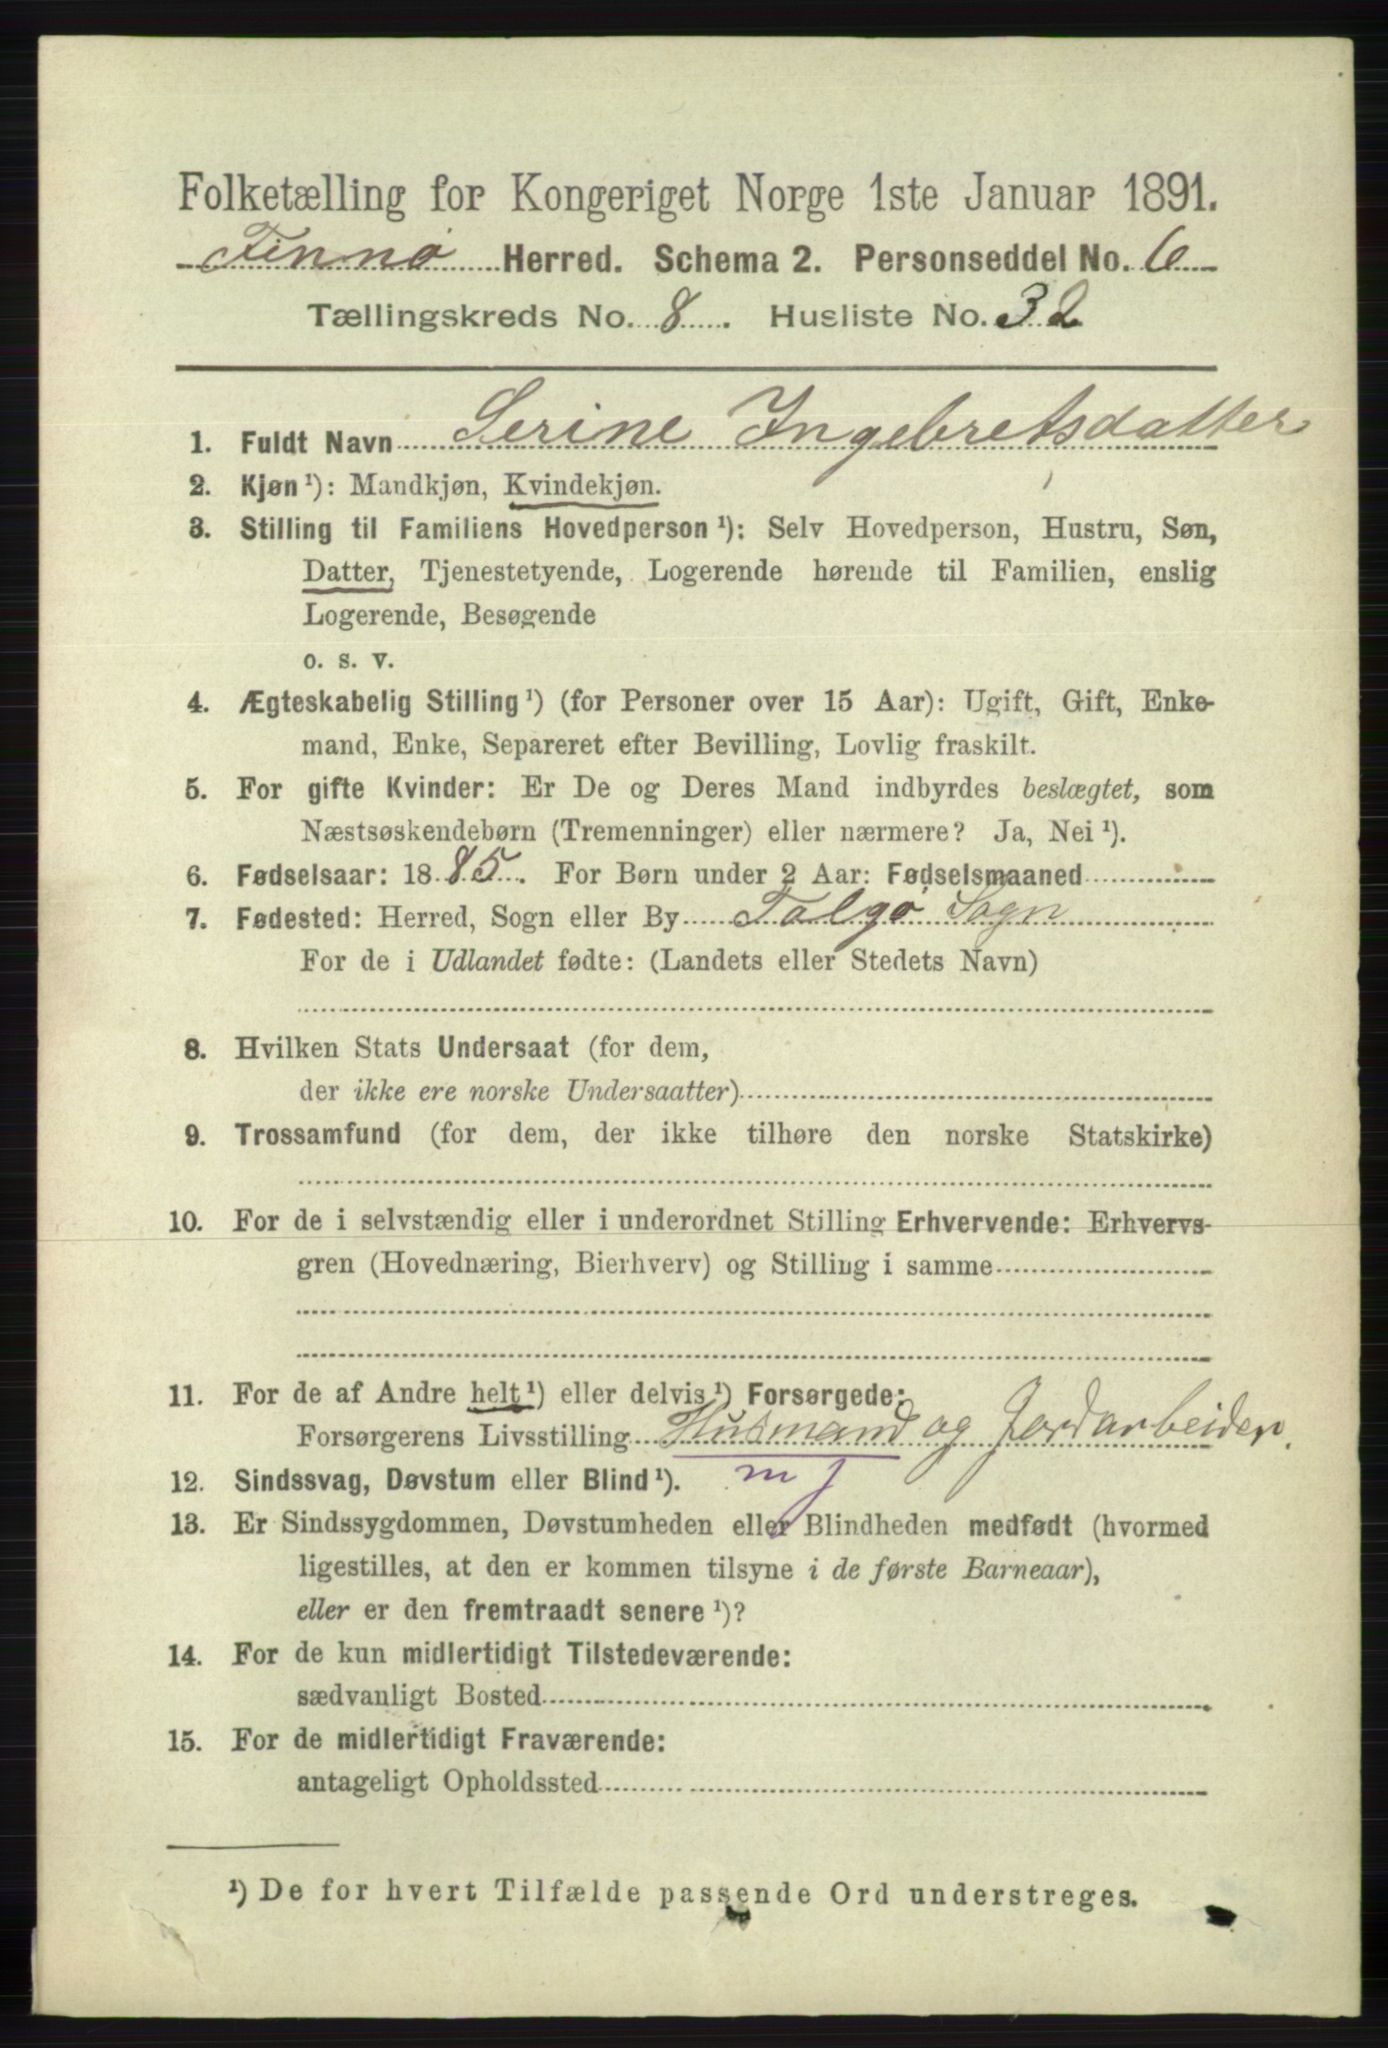 Folketælling for Kongeriget Norge 1ste Januar 1891.
Finnø Herred. Schema 2. Personseddel No. 6
Tællingskreds No. 8. Husliste No. 32
1. Fuldt Navn Serine Ingebretsdatter
2. Kjøn ¹): Mandkjøn, Kvindekjøn.
3. Stilling til Familiens Hovedperson ¹): Selv Hovedperson, Hustru, Søn,
Datter, Tjenestetyende, Logerende hørende til Familien, enslig
Logerende, Besøgende
o. s. v.
4. Ægteskabelig Stilling ¹) (for Personer over 15 Aar): Ugift, Gift, Enke-
mand, Enke, Separeret efter Bevilling, Lovlig fraskilt.
5. For gifte Kvinder: Er De og Deres Mand indbyrdes beslægtet, som
Næstsøskendebørn (Tremenninger) eller nærmere? Ja, Nei ¹).
6. Fødselsaar: 1885. For Børn under 2 Aar: Fødselsmaaned
7. Fødested: Herred, Sogn eller By Talgø Sogn
For de i Udlandet fødte: (Landets eller Stedets Navn)
8. Hvilken Stats Undersaat (for dem,
der ikke ere norske Undersaatter)
9. Trossamfund (for dem, der ikke tilhøre den norske Statskirke)
10. For de i selvstændig eller i underordnet Stilling Erhvervende: Erhvervs-
gren (Hovednæring, Bierhverv) og Stilling i samme
11. For de af Andre helt ¹) eller delvis ¹) Forsørgede:
Forsørgerens Livsstilling Husmand og Jordarbeider.
12. Sindssvag, Døvstum eller Blind ¹). m j
13. Er Sindssygdommen, Døvstumheden eller Blindheden medfødt (hvormed
ligestilles, at den er kommen tilsyne i de første Barneaar),
eller er den fremtraadt senere ¹)?
14. For de kun midlertidigt Tilstedeværende:
sædvanligt Bosted
15. For de midlertidigt Fraværende:
antageligt Opholdssted
¹) De for hvert Tilfælde passende Ord understreges.